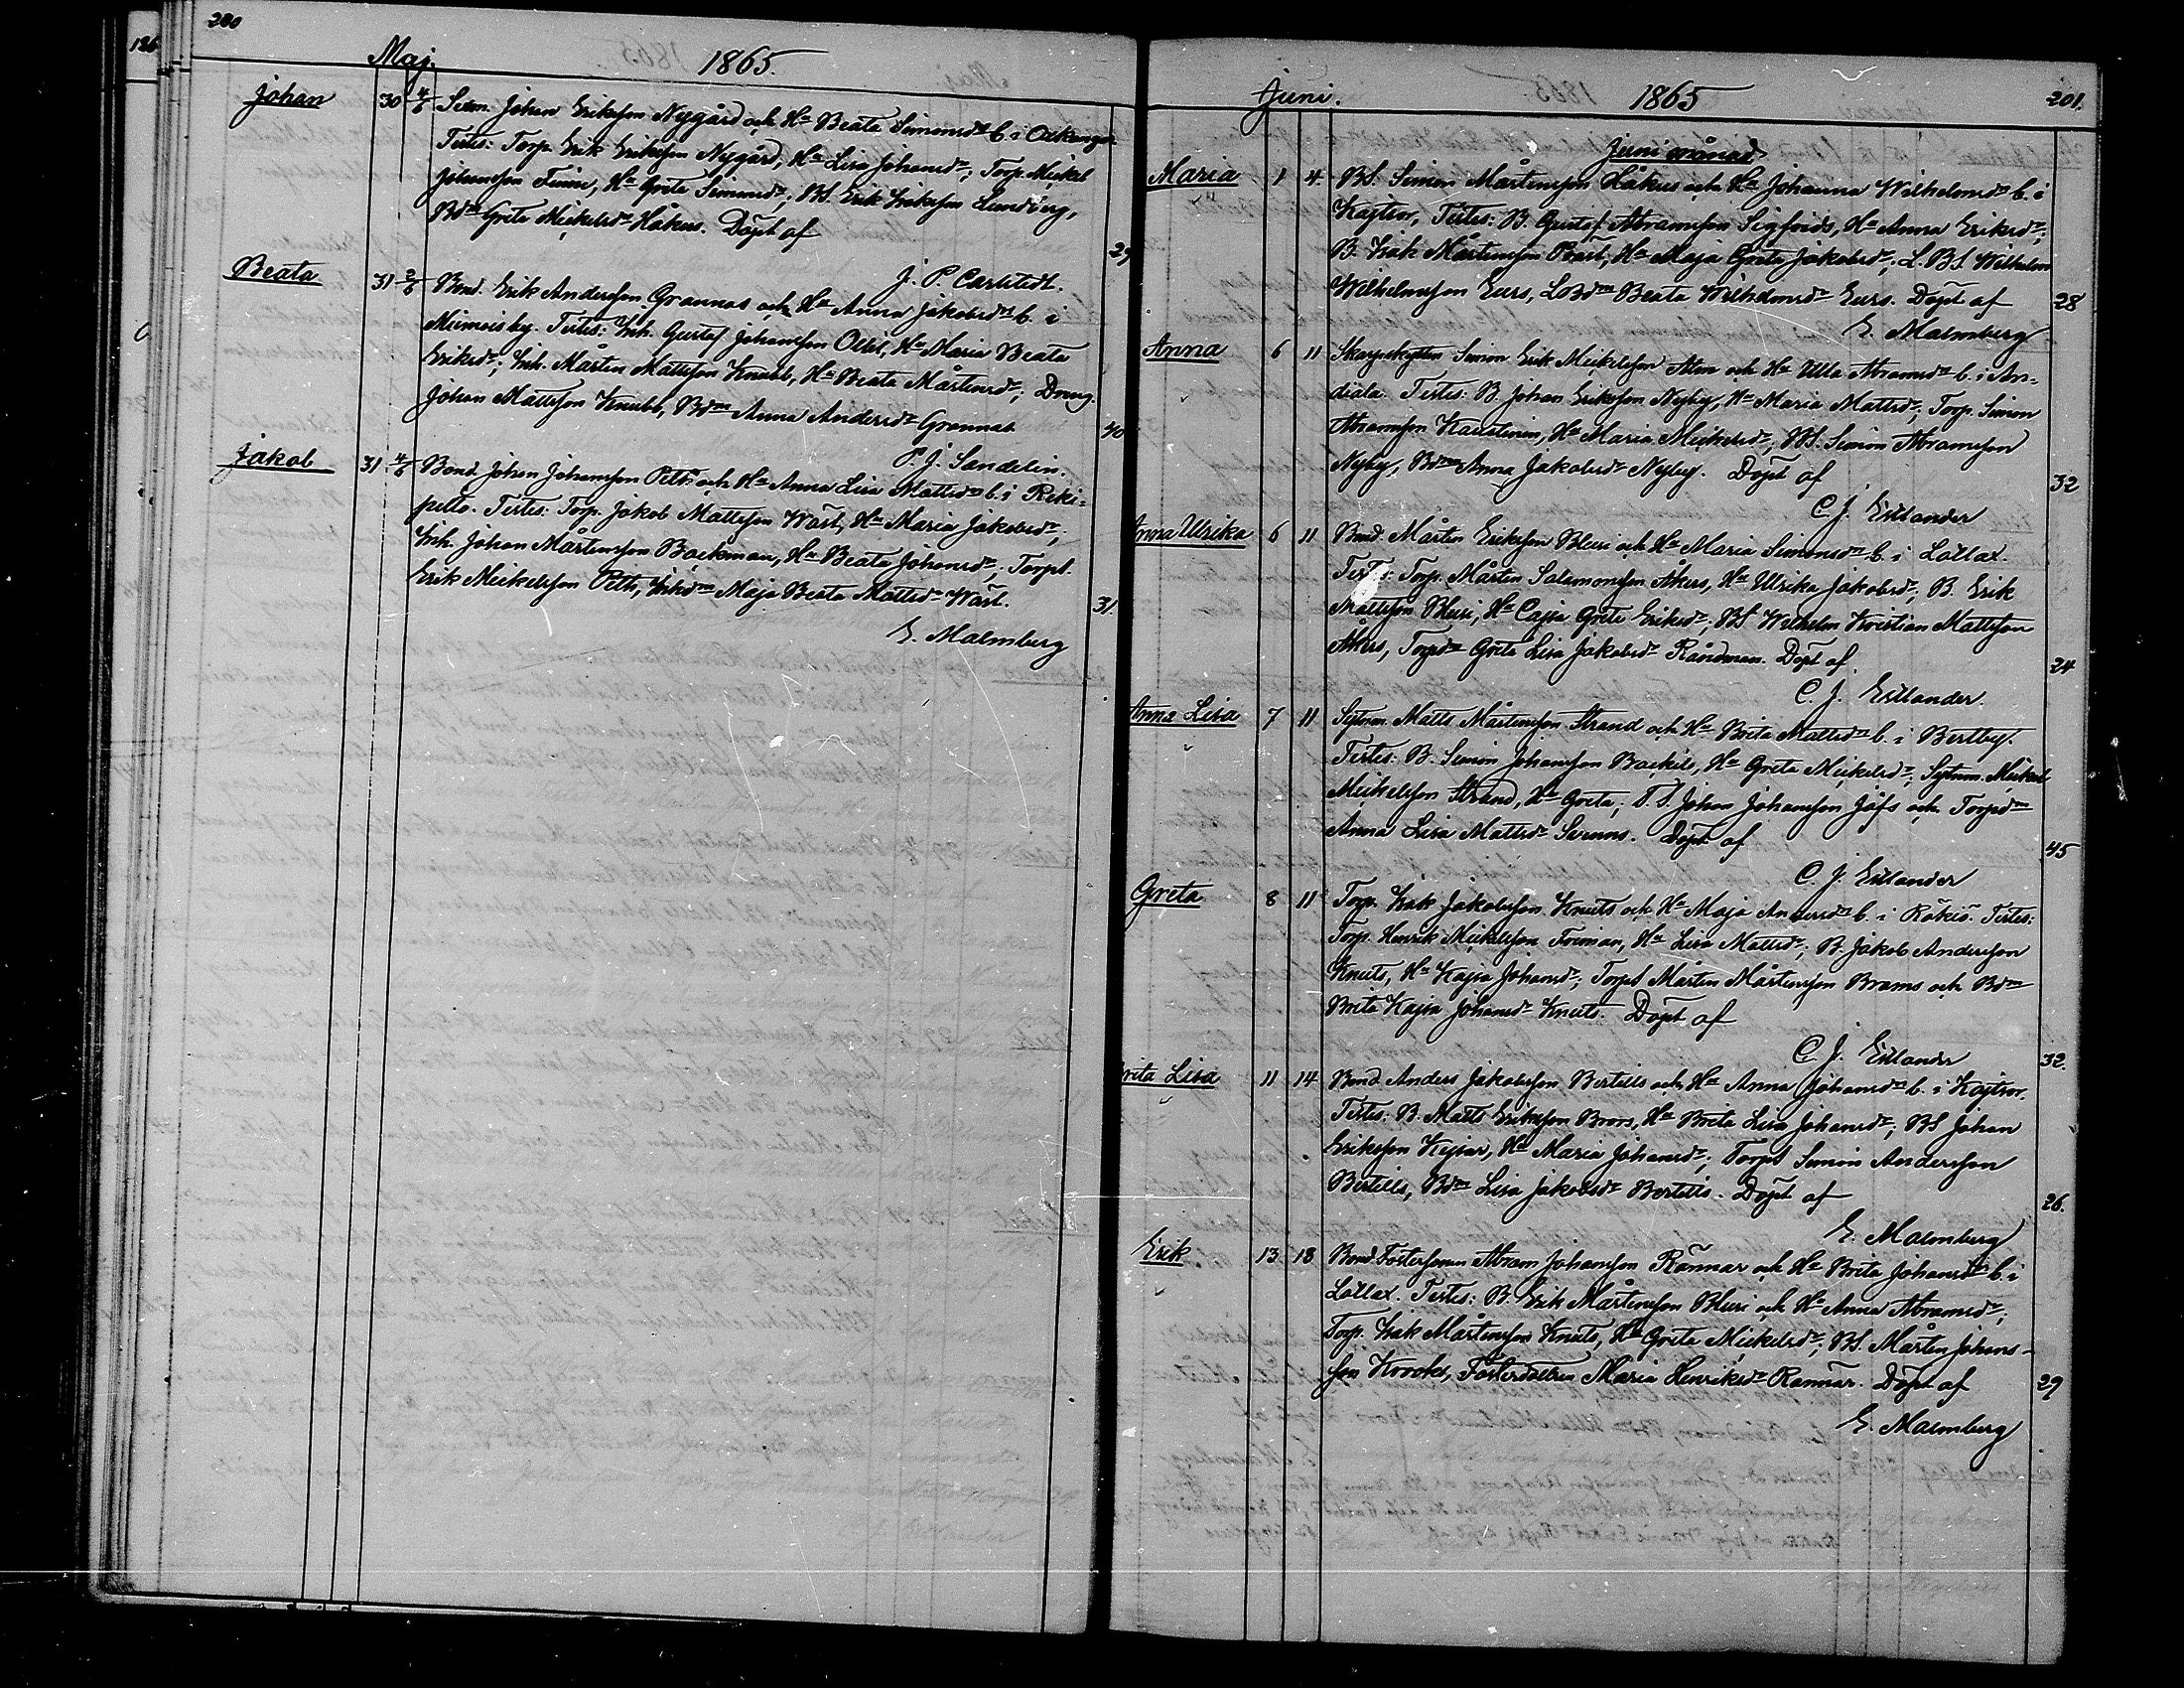 200
Maj. 1865.
Johan 30 4/6 Sexm. Johan Eriksson Nygård och Hu Beata Simonsdr b. i Oxkangar
Testes: Torp. Erik Eriksson Nygård, Hu Lisa Johansdr; Torp. Mickel
Johansson Finne, Hu Greta Simonsdr; BS. Erik Eriksson Lundberg,
Bdn Greta Mickelsdr Håkus. Döpt af 29
J. P. Carlstedt.
Beata 31 2/6 Bond. Erik Andersson Grannas och Hu Anna Jakobsdr b. i
Miemoisby. Testes: Inh. Gustaf Johansson Ollis, Hu Maria Beata
Eriksdr; Inh. Mårten Mattsson Knubb, Hu Beata Mårtensdr; Dreng.
Johan Mattsson Knubb, Bdn Anna Andersdr Grannas 40
P. J. Sandelin.
Jakob 31 4/6 Bond Johan Johansson Peth och Hu Anna Lisa Mattsdr b. i Reki-
pelto. Testes: Torp. Jakob Mattsson Wäst, Hu Maria Jakobsdr;
Inh. Johan Mårtensson Backman, Hu Beata Johansdr; Torpd.
Erik Mickelsson Peth, Inhdn Maja Beata Mattsdr Wäst. 31.
E. Malmberg
Juni. 1865 201.
Juni månad
Maria 1 4. BS. Simon Mårtensson Håkus och Hu Johanna Wilhelmsdr b. i
Kajtsor, Testes: B. Gustaf Abramsson Sigfrids, Hu Anna Eriksdr;
B. Isak Mårtensson Präst, Hu Maja Greta Jakobsdr; L.BS. Wilhelm
Wilhelmsson Eurs, LBdn Beata Wilhelmsdr Eurs. Döpt af 28
E. Malmberg
Anna 6 11 Skarpskytten Simon Erik Mickelsson Alm och Hu Ulla Abramsdr b. i An-
diala. Testes: B. Johan Eriksson Nyby, Hu Maria Mattsdr; Torp. Simon
Abramsson Kaustinen, Hu Maria Mickelsdr; BS. Simon Abramsson
Nyby, Bdn Anna Jakobsdr Nyby. Döpt af 32
C. J. Estlander
Anna Ulrika 6 11 Bond. Mårten Eriksson Bluri och Hu Maria Simonsdr b. i Lollax.
Testes: Torp. Mårten Salomonsson Åkers, Hu Ulrika Jakobsdr; B. Erik
Mattsson Bluri, Hu Cajsa Greta Eriksdr; BS Wilhelm Kristian Mattsson
Åkers, Torpdn Greta Lisa Jakobsdr Rándman. Döpt af 24
C. J. Estlander.
Anna Lisa 7 11 Sytnm. Matts Mårtensson Strand och Hu Brita Mattsdr b. i Bertby.
Testes: B. Simon Johansson Backils, Hu Greta Mickelsdr; Sytnm. Mickel
Mickelsson Strand, Hu Greta; T.S. Johan Johansson Jåfs och Torpdn
Anna Lisa Mattsdr Svenns. Döpt af 45
C. J. Estlander
Greta 8 11 Torp. Isak Jakobsson Knuts och Hu Maja Andersdr b. i Rökiö. Testes:
Torp. Henrik Mickelsson Forman, Hu Lisa Mattsdr; B. Jakob Andersson
Knuts, Hu Kajsa Johansdr; Torpd Mårten Mårtensson Brams och Bdn
Brita Kajsa Johansdr Knuts. Döpt af
C. J. Estlander 32.
Brita Lisa 11 14 Bond Anders Jakobsson Bertills och Hu Anna Johansdr b. i Kajtsor.
Testes: B. Matts Eriksson Brors, Hu Brita Lisa Johansdr; BS Johan
Eriksson Kejsar, Hu Maria Johansdr; Torpd Simon Andersson
Bertills, Bdn Lisa Jakobsdr Bertills. Döpt af 26.
E. Malmberg
Erik 13 18 Bond. Fostersonen Abram Johansson Rännar och Hu Brita Johansdr b. i
Lollax. Testes: B. Erik Mårtensson Bluri och Hu Anna Abramsdr;
Torp. Isak Mårtensson Knuts, Hu Greta Mickelsdr; BS. Mårten Johans-
son Krooks, Fosterdottren Maria Henriksdr Rännar. Döpt af 29
E. Malmberg